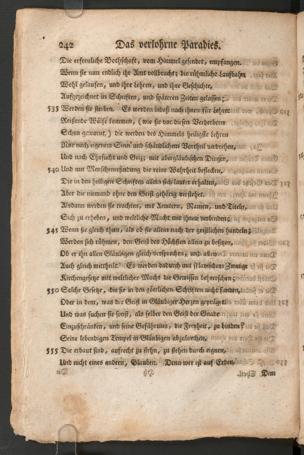 242 Das verlohrne Paradies.
Die erfreuliche Bothschaft, vom Himmel gesendet, empfangen.
Wenn sie nun endlich ihr Amt vollbracht; die rühmliche Laufbahn
Wohl gelaufen, und ihre Lehren, und ihre Geschichte,
Aufgezeichnet in Schriften, und späteren Zeiten gelassen;
535 Werden sie sterben. Es werden indeß nach ihnen für Lehrer
Reissende Wölfe kommen, (wie sie vor diesen Verderbern
Schon gewarnt) die werden des Himmels heiligste Lehren
Nur nach eigenem Sinn und schändlichem Vortheil verdrehen,
Und nach Ehrsucht und Geiz; mit abergläubischen Dingen,
540 Und mit Menschenmeinung die reine Wahrheit beflecken,
Die in den heiligen Schriften allein sich lauter erhalten,
Aber die niemand ohne den Geist gehörig verstehet.
Alsdann werden sie trachten, mit Aemtern, Namen, und Titeln,
Sich zu erheben, und weltliche Macht mit ihnen verbinden;
545 Wenn sie gleich thun, als ob sie allein nach der geistlichen handeln;
Werden sich rühmen, den Geist des Höchsten allein zu besitzen,
Ob er ihn allen Gläubigen gleich versprochen, und allen
Auch gleich mittheilt. Es werden dadurch mit sklavischem Zwange
Kirchengesetze mit weltlicher Macht die Gewissen beherrschen;
550 Solche Gesetze, die sie in den göttlichen Schriften nicht fanden,
Oder in dem, was der Geist in Gläubiger Herzen gepräget.
Und was suchen sie sonst, als selber den Geist der Gnade
Einzuschränken, und seine Gefährtinn, die Freyheit, zu binden?
Seine lebendigen Tempel in Gläubigen abzubrechen,
555 Die erbaut sind, aufrecht zu stehn, zu stehen durch eignen,
Und nicht eines andern, Glauben. Denn wer ist auf Erden
Dem